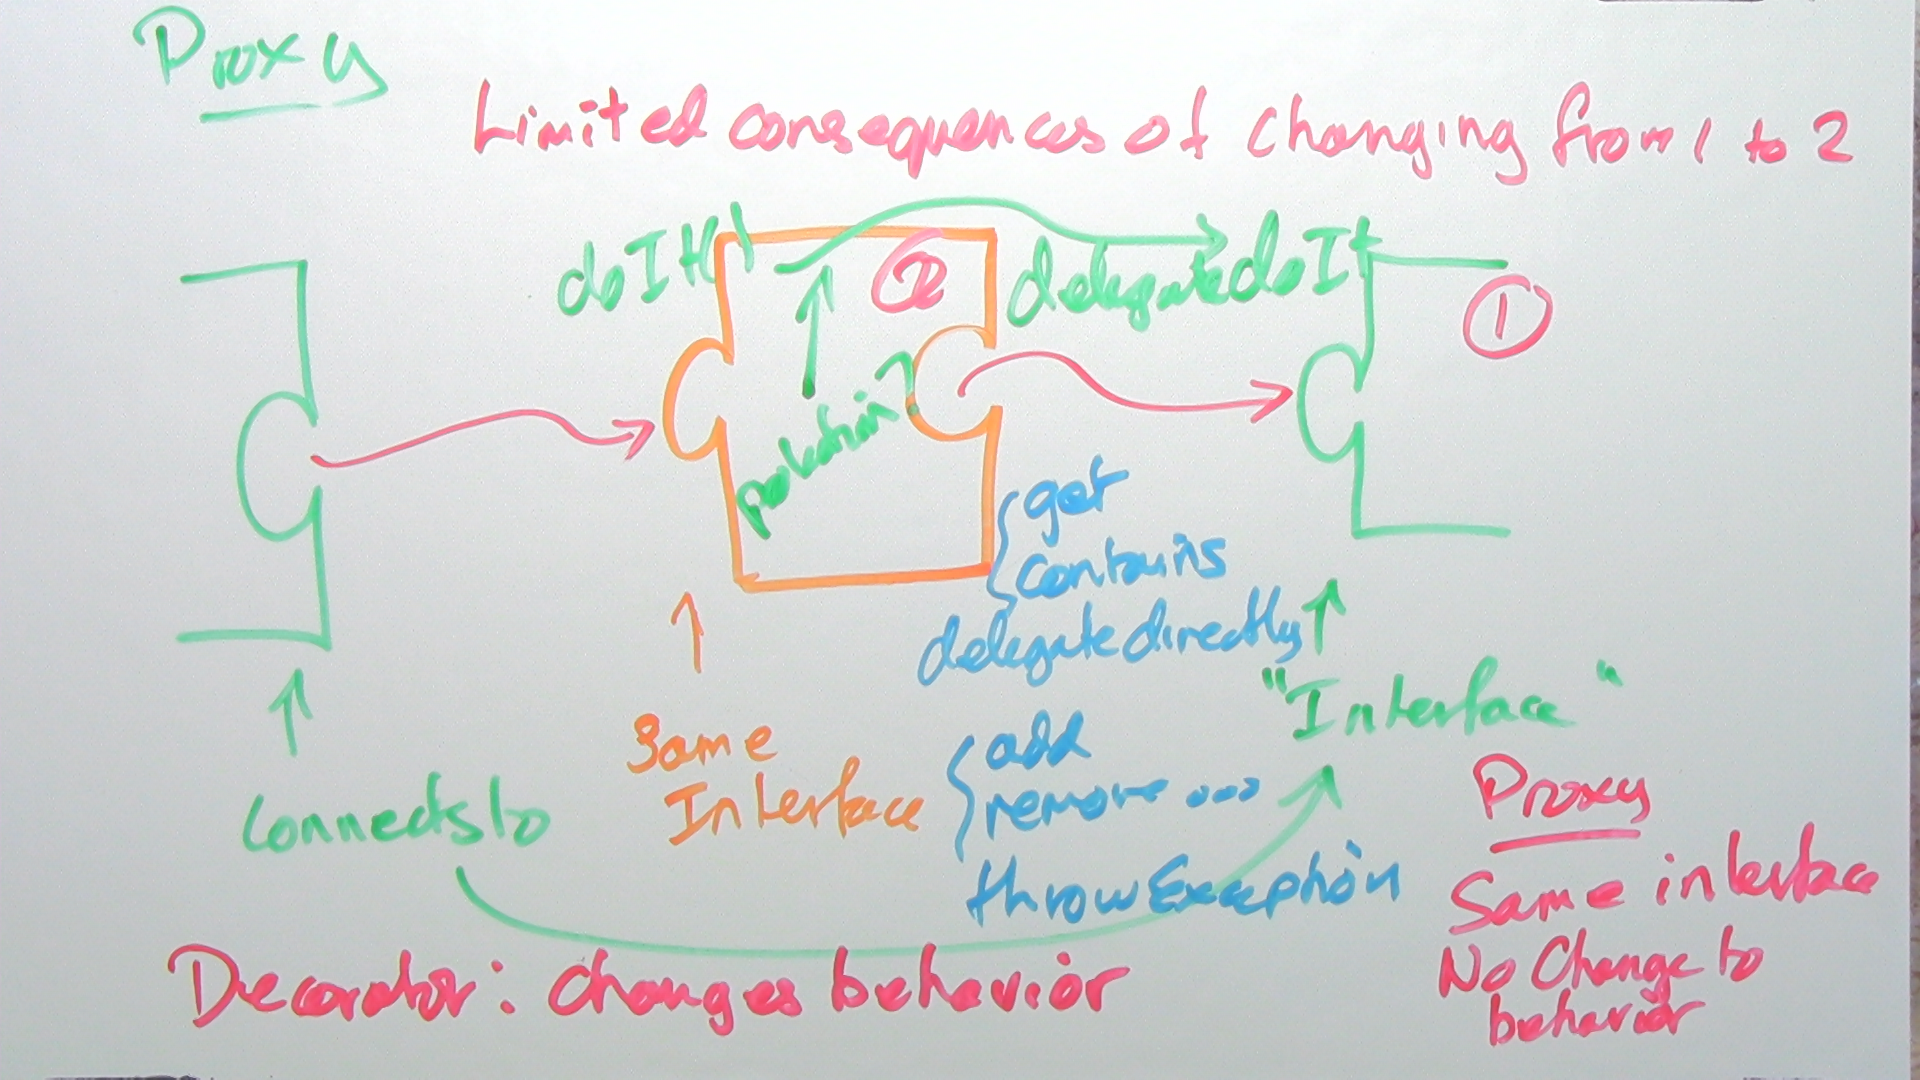 Proxy
Limited consequences of changing from 1 to 2
doIt()
2
delegate doIt
1
protection?
get
contains
delegate directly
"Interface"
Same
Interface
add
remove...
throw Exception
Connects to
Proxy
Same interface
No Change to
behavior
Decorator: changes behavior